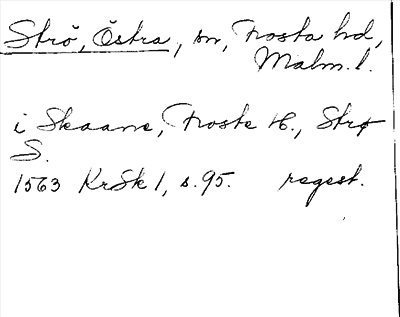 Strö, Östra, sn, Frosta hd,
Malm. l.
i Skaane, Froste H., Strø
S.
1563 KrSk 1, s. 95. regest.